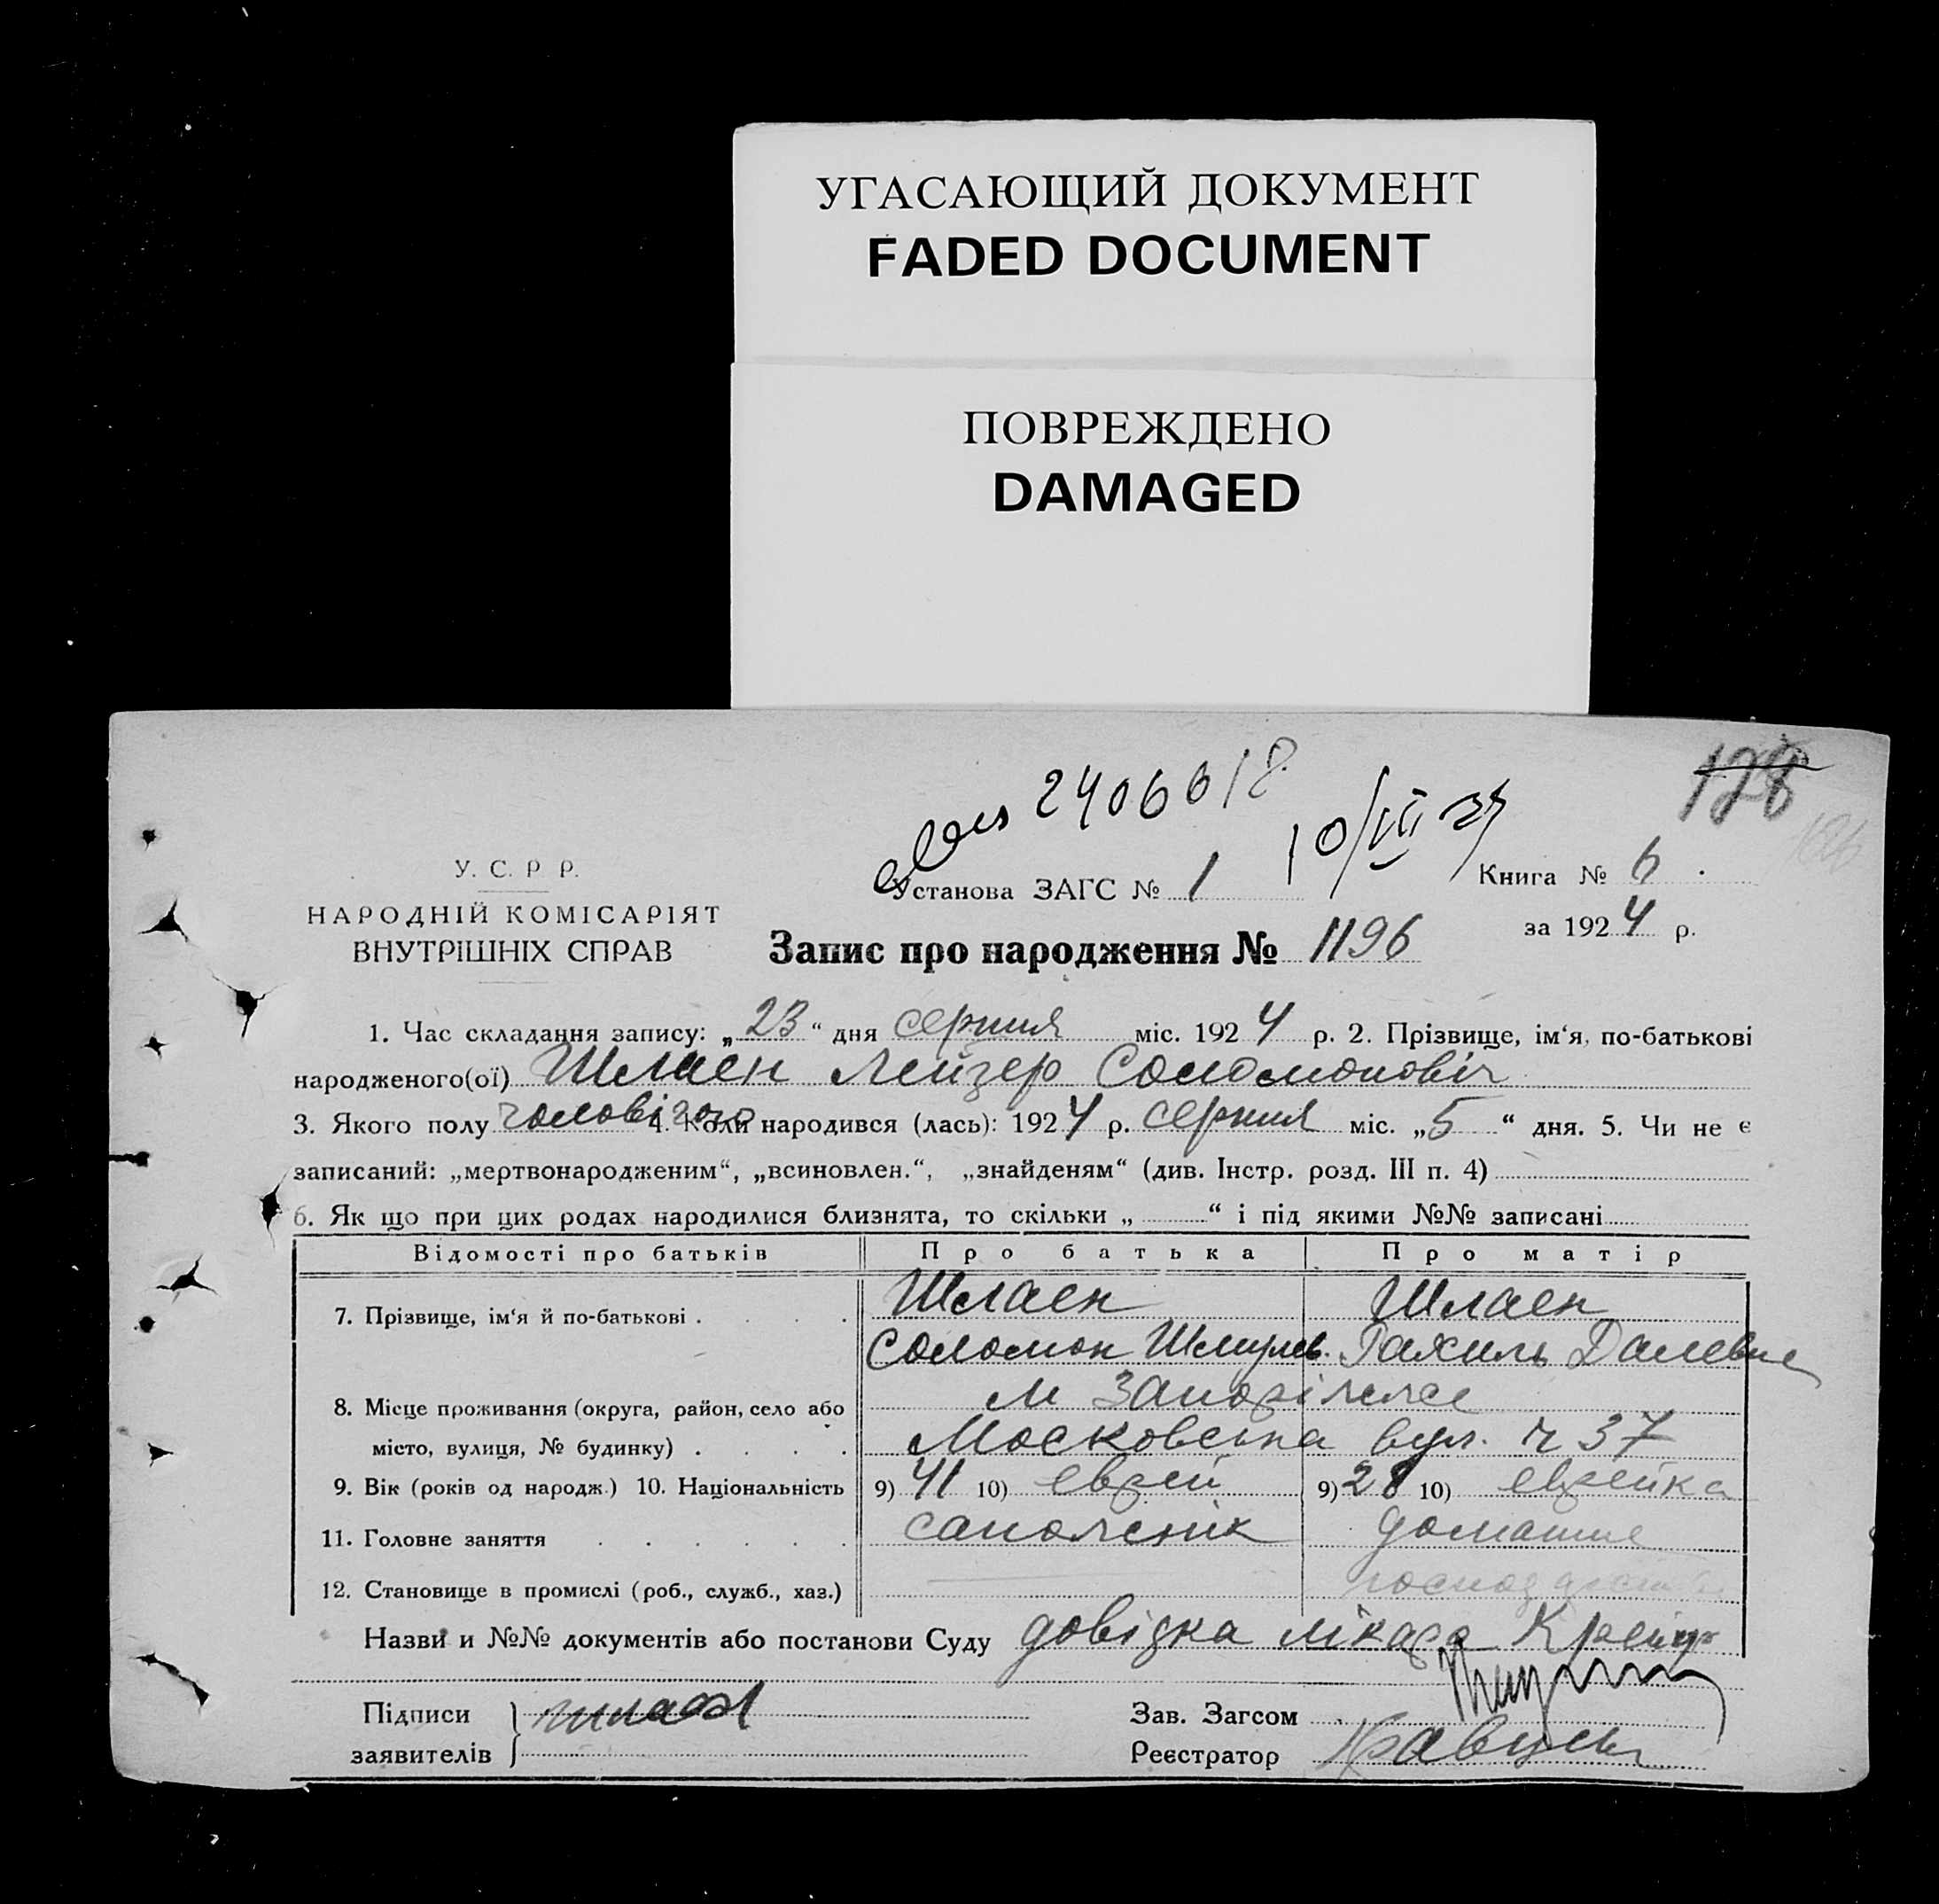 УГАСАЮЩИЙ ДОКУМЕНТ
FADED DOCUMENT
ПОВРЕЖДЕНО
DAMAGED
2406618
128
10/VII
У. С. Р Р.
Установа ЗАГС № 1
Книга № 6
НАРОДНІЙ КОМІСАРІЯТ
ВНУТРІШНІХ СПРАВ
за 1924 р.
Запис про народження № 1196
1. Час складання запису: „23“ дня серпня міс. 1924 р. 2. Прізвище, ім‘я, по-батькові
народженого(ої) Шлаен Лейзер Соломоновіч
3. Якого полу чоловічого 4. Коли народився (лась): 1924 р. серпня міс. „5“ дня. 5. Чи не є
записаний: „мертвонародженим“, „всиновлен.“, „знайденям“ (див. Інстр. розд. III п. 4)
6. Як що при цих родах народилися близнята, то скільки „ “ і під якими №№ записані
Відомості про батьків Про батька Про матір
7. Прізвище, ім‘я й по-батькові Шлаен Шлаен
Соломон Шмулев. Рахиль
8. Місце проживання (округа, район, село або м Запоріжже
місто, вулиця, № будинку) Московська вул. ч 37
9. Вік (років од народж.) 10. Національність 9) 41 10) еврей 9) 28 10) еврейка
11. Головне заняття сапожнік домашне
12. Становище в промислі (роб., служб., хаз.)
Назви и №№ документів або постанови Суду довідка лікаря
Підписи
заявителів
Зав. Загсом
Реєстратор Кравцов